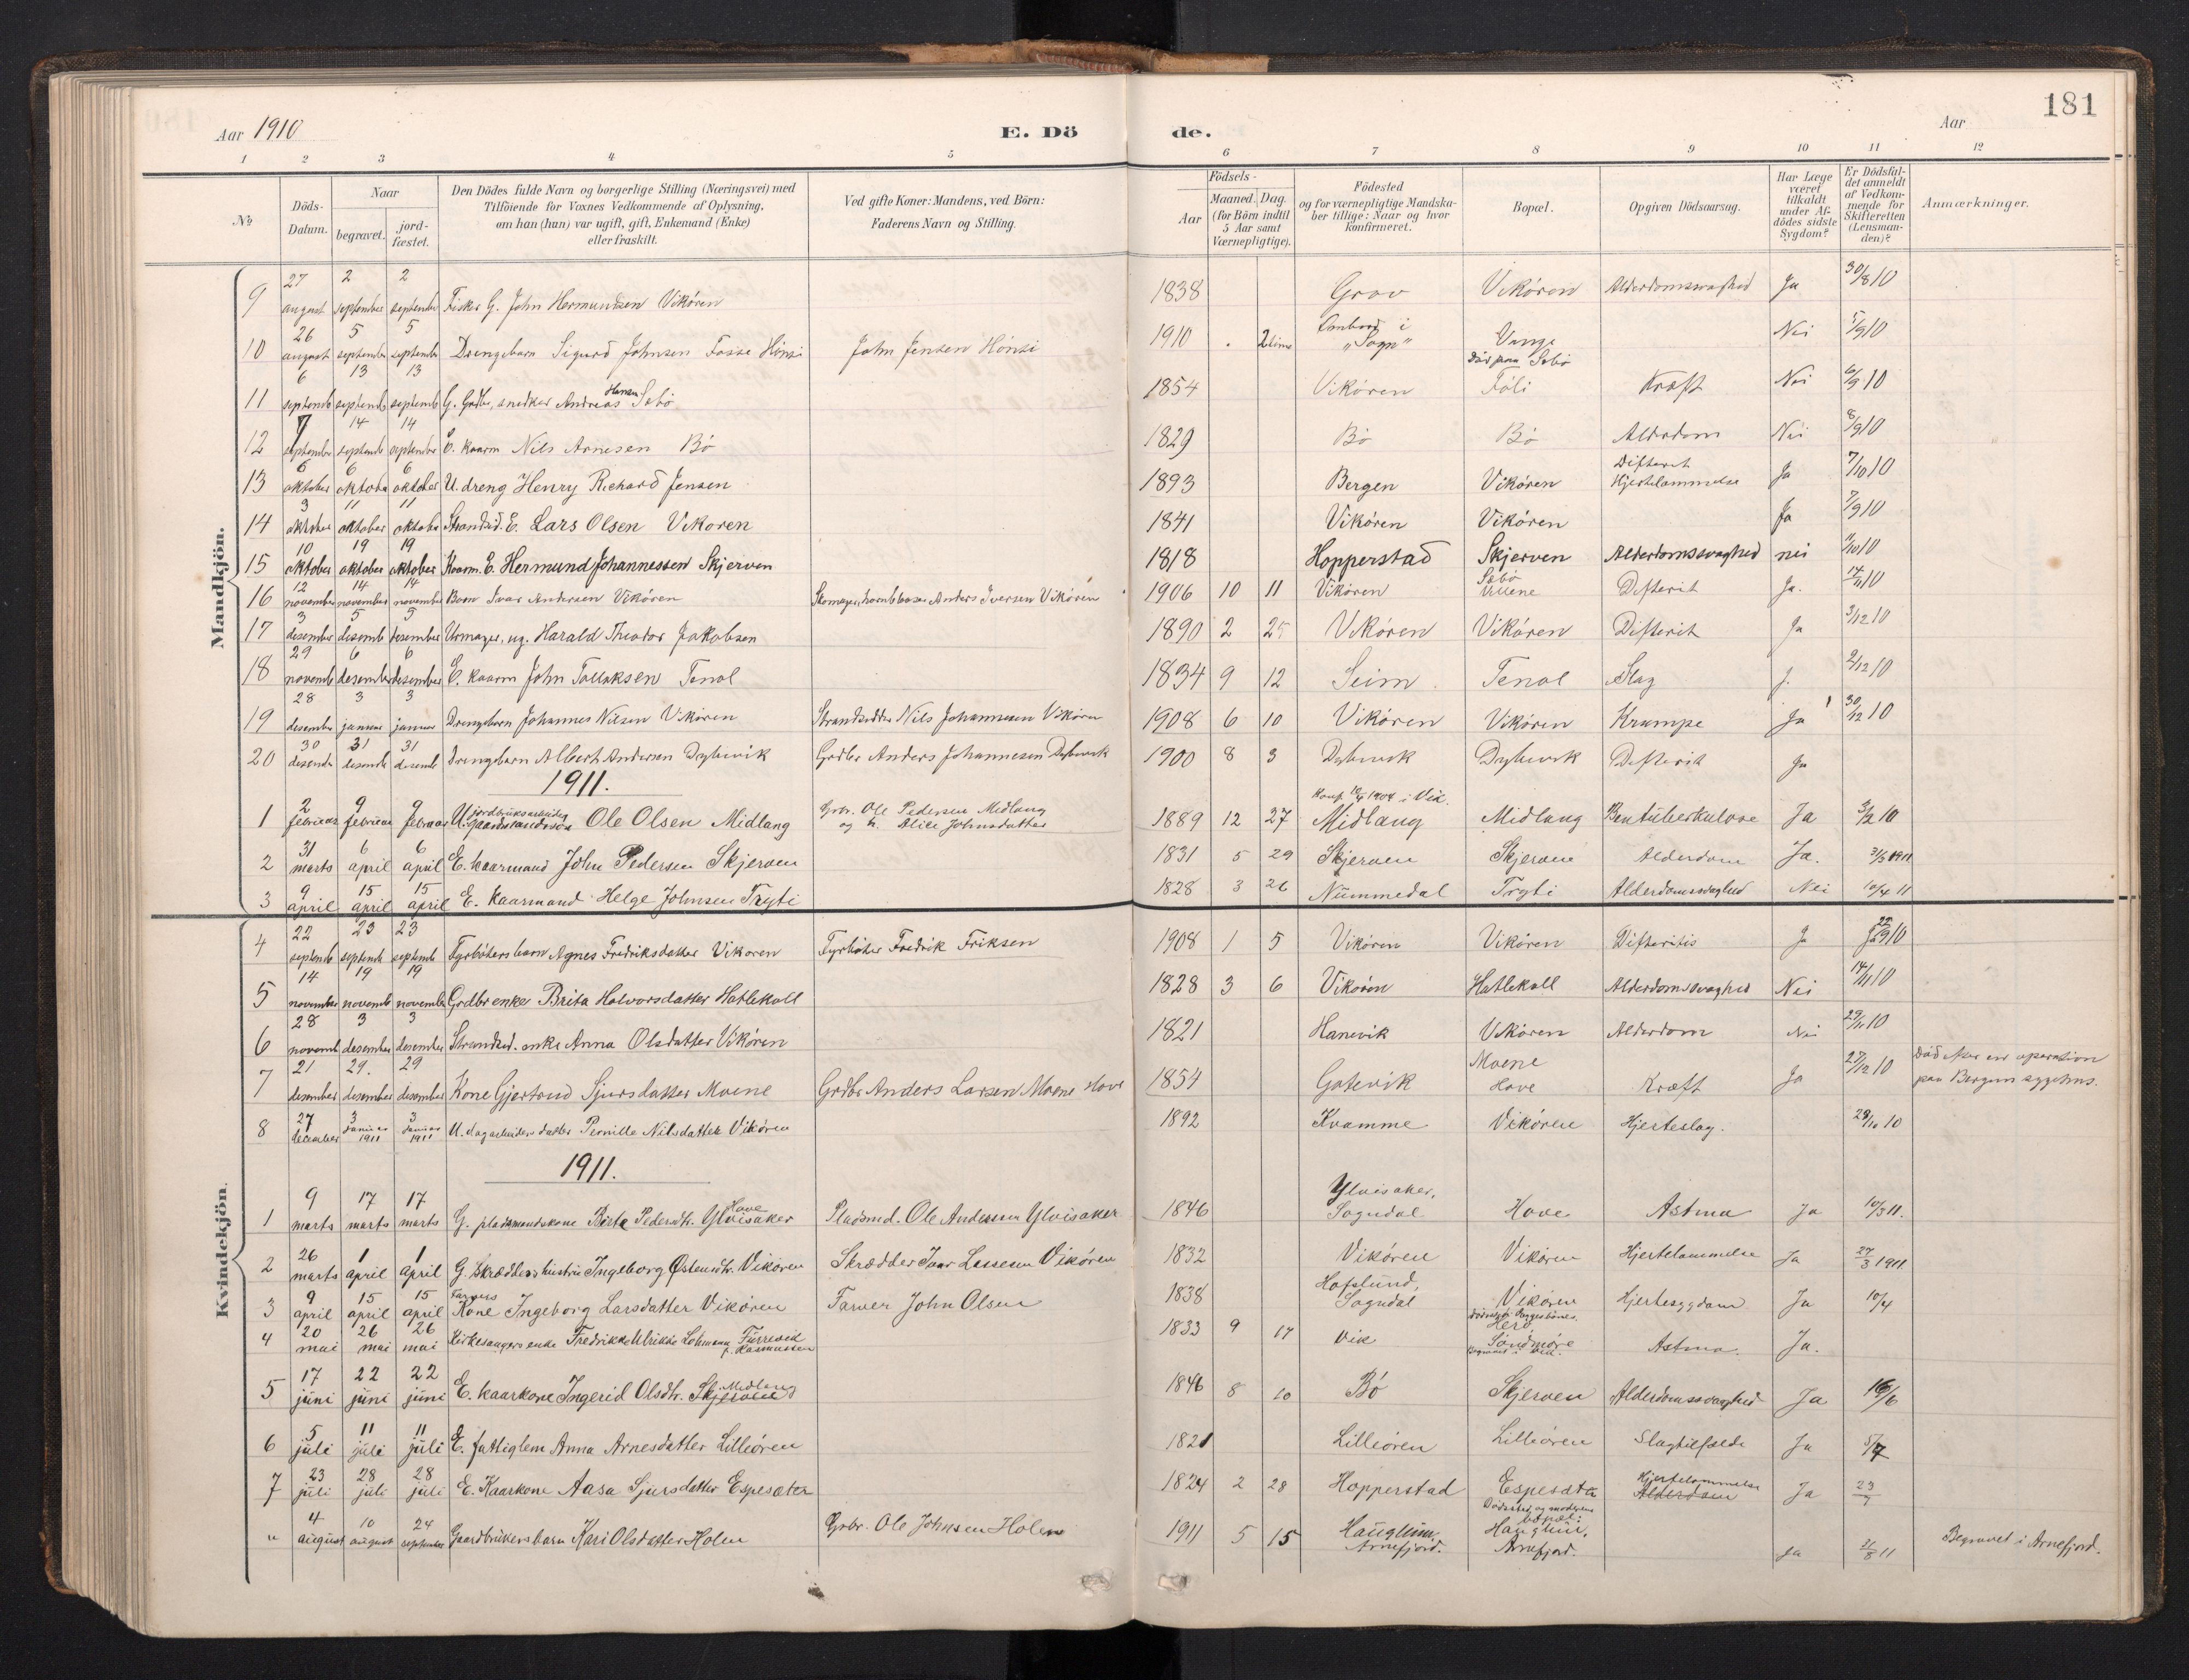 181
Aar 1910
E. Dö
de.
Aar
1 2 3 4 5 6 7 8 9 10 11 12
No
Döds-
Datum.
Naar
begravet.
jord-
fæstet.
Den Dödes fulde Navn og borgerlige Stilling (Næringsvei) med
Tilföiende for Voxnes Vedkommende af Oplysning,
om han (hun) var ugift, gift, Enkemand (Enke)
eller fraskilt.
Ved gifte Koner: Mandens, ved Börn:
Faderens Navn og Stilling.
Födsels-
Aar
Maaned. Dag.
(for Börn indtil
5 Aar samt
Værnepligtige).
Födested
og for værnepligtige Mandska-
ber tillige: Naar og hvor
konfirmeret.
Bopæl.
Opgiven Dödsaarsag.
Har Læge
været
tilkaldt
under Af-
dödes sidste
Sygdom?
Er Dödsfal-
det anmeldt
af Vedkom-
mende for
Skifteretten
(Lensman-
den)?
Anmærkninger.
Mandkjön.
9 27 august 2 september 2 september Fisker G. John Hermundsen Vikören 1838 Grov Vikören Alderdomssvaghed Ja 30/8 10
10 26 august 5 september 5 september Drengebarn Sigurd Johnsen Fosse Hönsi John Jensen Hönsi 1910 2 time Ombord i "Sogn" Vange Nei 5/9 10
11 6 septemb 13 septemb 13 septemb G. Grdbr, snedker Andreas Hansen Sebö 1854 Vikören död paa Sebö Föli Kræft Nei 6/9 10
12 7 september 14 septemb 14 september E. kaarm Nils Arnesen Bö 1829 Bö Bö Alderdom Nei 8/9 10
13 6 oktober 6 oktober 6 oktober U. dreng Henry Richard Jensen 1893 Bergen Vikören Difterit Hjertelammelse Ja 7/10 10
14 3 oktober 11 oktober 11 oktober Strandsid. E. Lars Olsen Vikoren 1841 Vikören Vikören Ja 7/9 10
15 10 oktober 19 oktober 19 oktober Kaarm. E. Hermund Johannessen Skjerven 1818 Hopperstad Skjerven Alderdomssvaghed nei
16 12 november 14 november 14 november Barn Ivar Andersen Vikören Skomager, Anders Iversen Vikören 1906 10 11 Vikören Sæbö Difterit Ja. 14/11 10
17 3 desember 5 desemb 5 desember Urmager, ug. Harald Theodor Jakobsen 1890 2 25 Vikören Vikören Difterit Ja 3/12 10
18 29 novemb 6 desember 6 desember E. kaarm John Tollaksen Tenol 1834 9 12 Seim Tenol Slag j. 2/12 10
19 28 desember 3 januar 3 januar Drengebarn Johannes Nilsen Vikören Strandsidder Nils Johannesen Vikören 1908 6 10 Vikören Vikören Krampe Ja 30/12 10
20 30 desembr 31 desemb 31 desemb Drengebarn Albert Andersen Dybevik Grdbr Anders Johannesen Dybevik 1900 8 3 Dybevik Dybevik Difterit Ja
1911.
1 2 februar 9 februar 9 februar U. jordbruksarbeider Ole Olsen Midlang Grbr. Ole Pedersen Midlang og h. Johnsdatter 1889 12 27 Konf. 1904 i Vik. Midlang Midlang Bentuberkulose Ja 3/2 10
2 31 marts 6 april 6 april E. kaarmand John Pedersen Skjerven 1831 5 29 Skjerven Skjerven Alderdom Ja. 1911
3 9 april 15 april 15 april E. Kaarmand Helge Johnsen Tryti 1828 3 26 Nummedal Tryti Alderdomssvaghed Nei 10/4 11
Kvindekjön.
4 22 septemb 23 septemb 23 septemb Fyrbøters barn Agnes Fredriksdatter Vikoren Fyrbøter Fredrik Friksen 1908 1 5 Vikören Vikören Difteritis J
5 14 november 19 novemb 19 november Grdbr enke Brita Halvorsdatter Hatlekoll 1828 3 6 Vikören Hatlekoll Alderdomssvaghed Nei 14/11 10
6 28 novemb 3 desember 3 desember Strandsid. enke Anna Olsdatter Vikören 1821 Hanevik Vikören Alderdom Nei 29/11 10
7 21 desember 29. desember 29 desember Kone Gjertrud Sjursdatter Moene Grdbr Anders Larsen Moene Hove 1854 Gotevik Moene Hove Kræft Ja 27/12 10 Död efter en operation paa Bergens sygehus.
8 27 december 3 Januar 1911 3 Januar 1911 U. dagarbeiders datter Pernille Nilsdatter Vikören 1892 Kvamme Vikören Hjerteslag.
1911.
1 9 marts 17 marts 17 marts G. pladsmandskone Brita Pedersdtr. Hove Ylvisaker Pladsmd. Ole Anderssen Ylvisaker 1846 Ylvisaker, Sogndal Hove Astma Ja 10/3 11.
2 26 marts 1 april 1 april G. Skrædders hustru Ingeborg Østensdtr. Vikören Skrædder Ivar Lassesen Vikören 1832 Vikören Vikören Hjertelammelse Ja 27/3 1911
3 9 april 15 april 15 april Farvers Kone Ingeborg Larsdatter Vikören Farver John Olsen 1838 Hofslund, Sogndal Vikören Hjertesygdom Ja 10/4
4 20 mai 26 mai 26 mai Kirkesangers enke Fredrikke Ulrikke Lohmann Furrevik f. Rasmussen 1833 9 17 Vik Herö Söndmöre Begravet i Vik. Astma. Ja.
5 17 juni 22 juni 22 juni E. kaarkone Ingerid Olsdtr. Midlang Skjerven 1846 8 10 Bö Skjerven Alderdomssvaghed Ja
6 5 juli 11 juli 11 juli E. fattiglem Anna Arnesdatter Lilleören 1821 Lilleören Lilleören Slagtilfælde Ja 5/7
7 23 juli 28 juli 28 juli E. Kaarkone Aasa Sjursdatter Espesæter 1824 2 28 Hopperstad Espesætr Hjertelammelse Alderdom Ja 23/7
" 4 august 10 august 24 september Gaardbrukersbarn Kari Olsdatter Holen Grbr. Ole Johnsen Holen 1911 5 15 Hauglum, Arnefjord. Dødssted og moderens bopæl: Hauglum, Arnefjord. Ja 21/8 11 Begravet i Arnefjord.